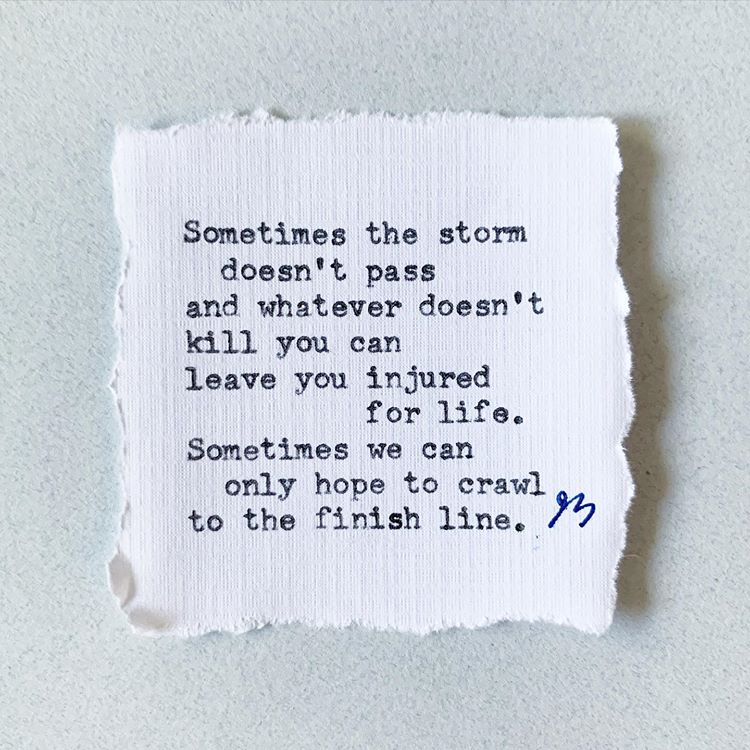 Sometimes the storm
doesn't pass
and whatever doesn't
kill you can
leave you injured
for life.
Sometimes we can
only hope to crawl
to the finish line.